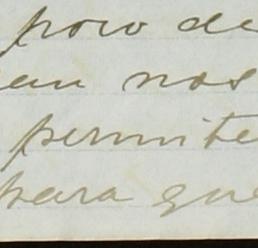 poco de
an nos
permite
para que